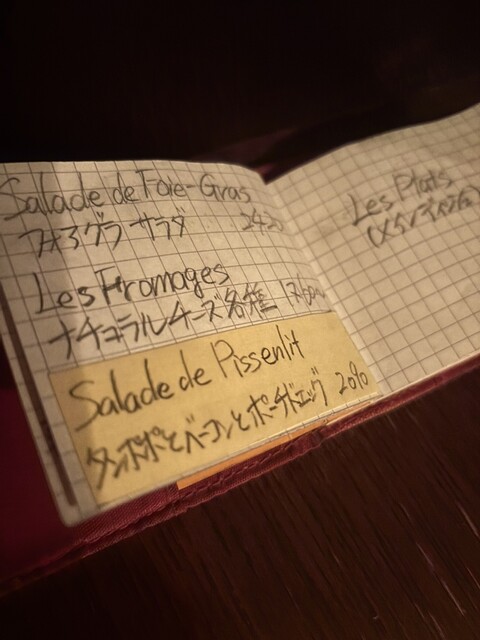 Salade de Foie-Gras
フォアグラ サラダ 2420
Les Fromages
ナチュラルチーズ各種
Salade de Pissenlit
タンポポとベーコンとポーチドエッグ 2090
Les Plats
(メインディッシュ)